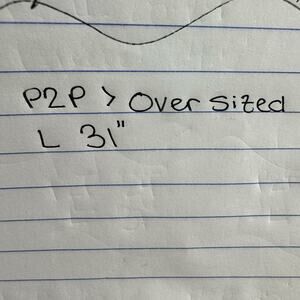 P2P > Over sized
L 31"